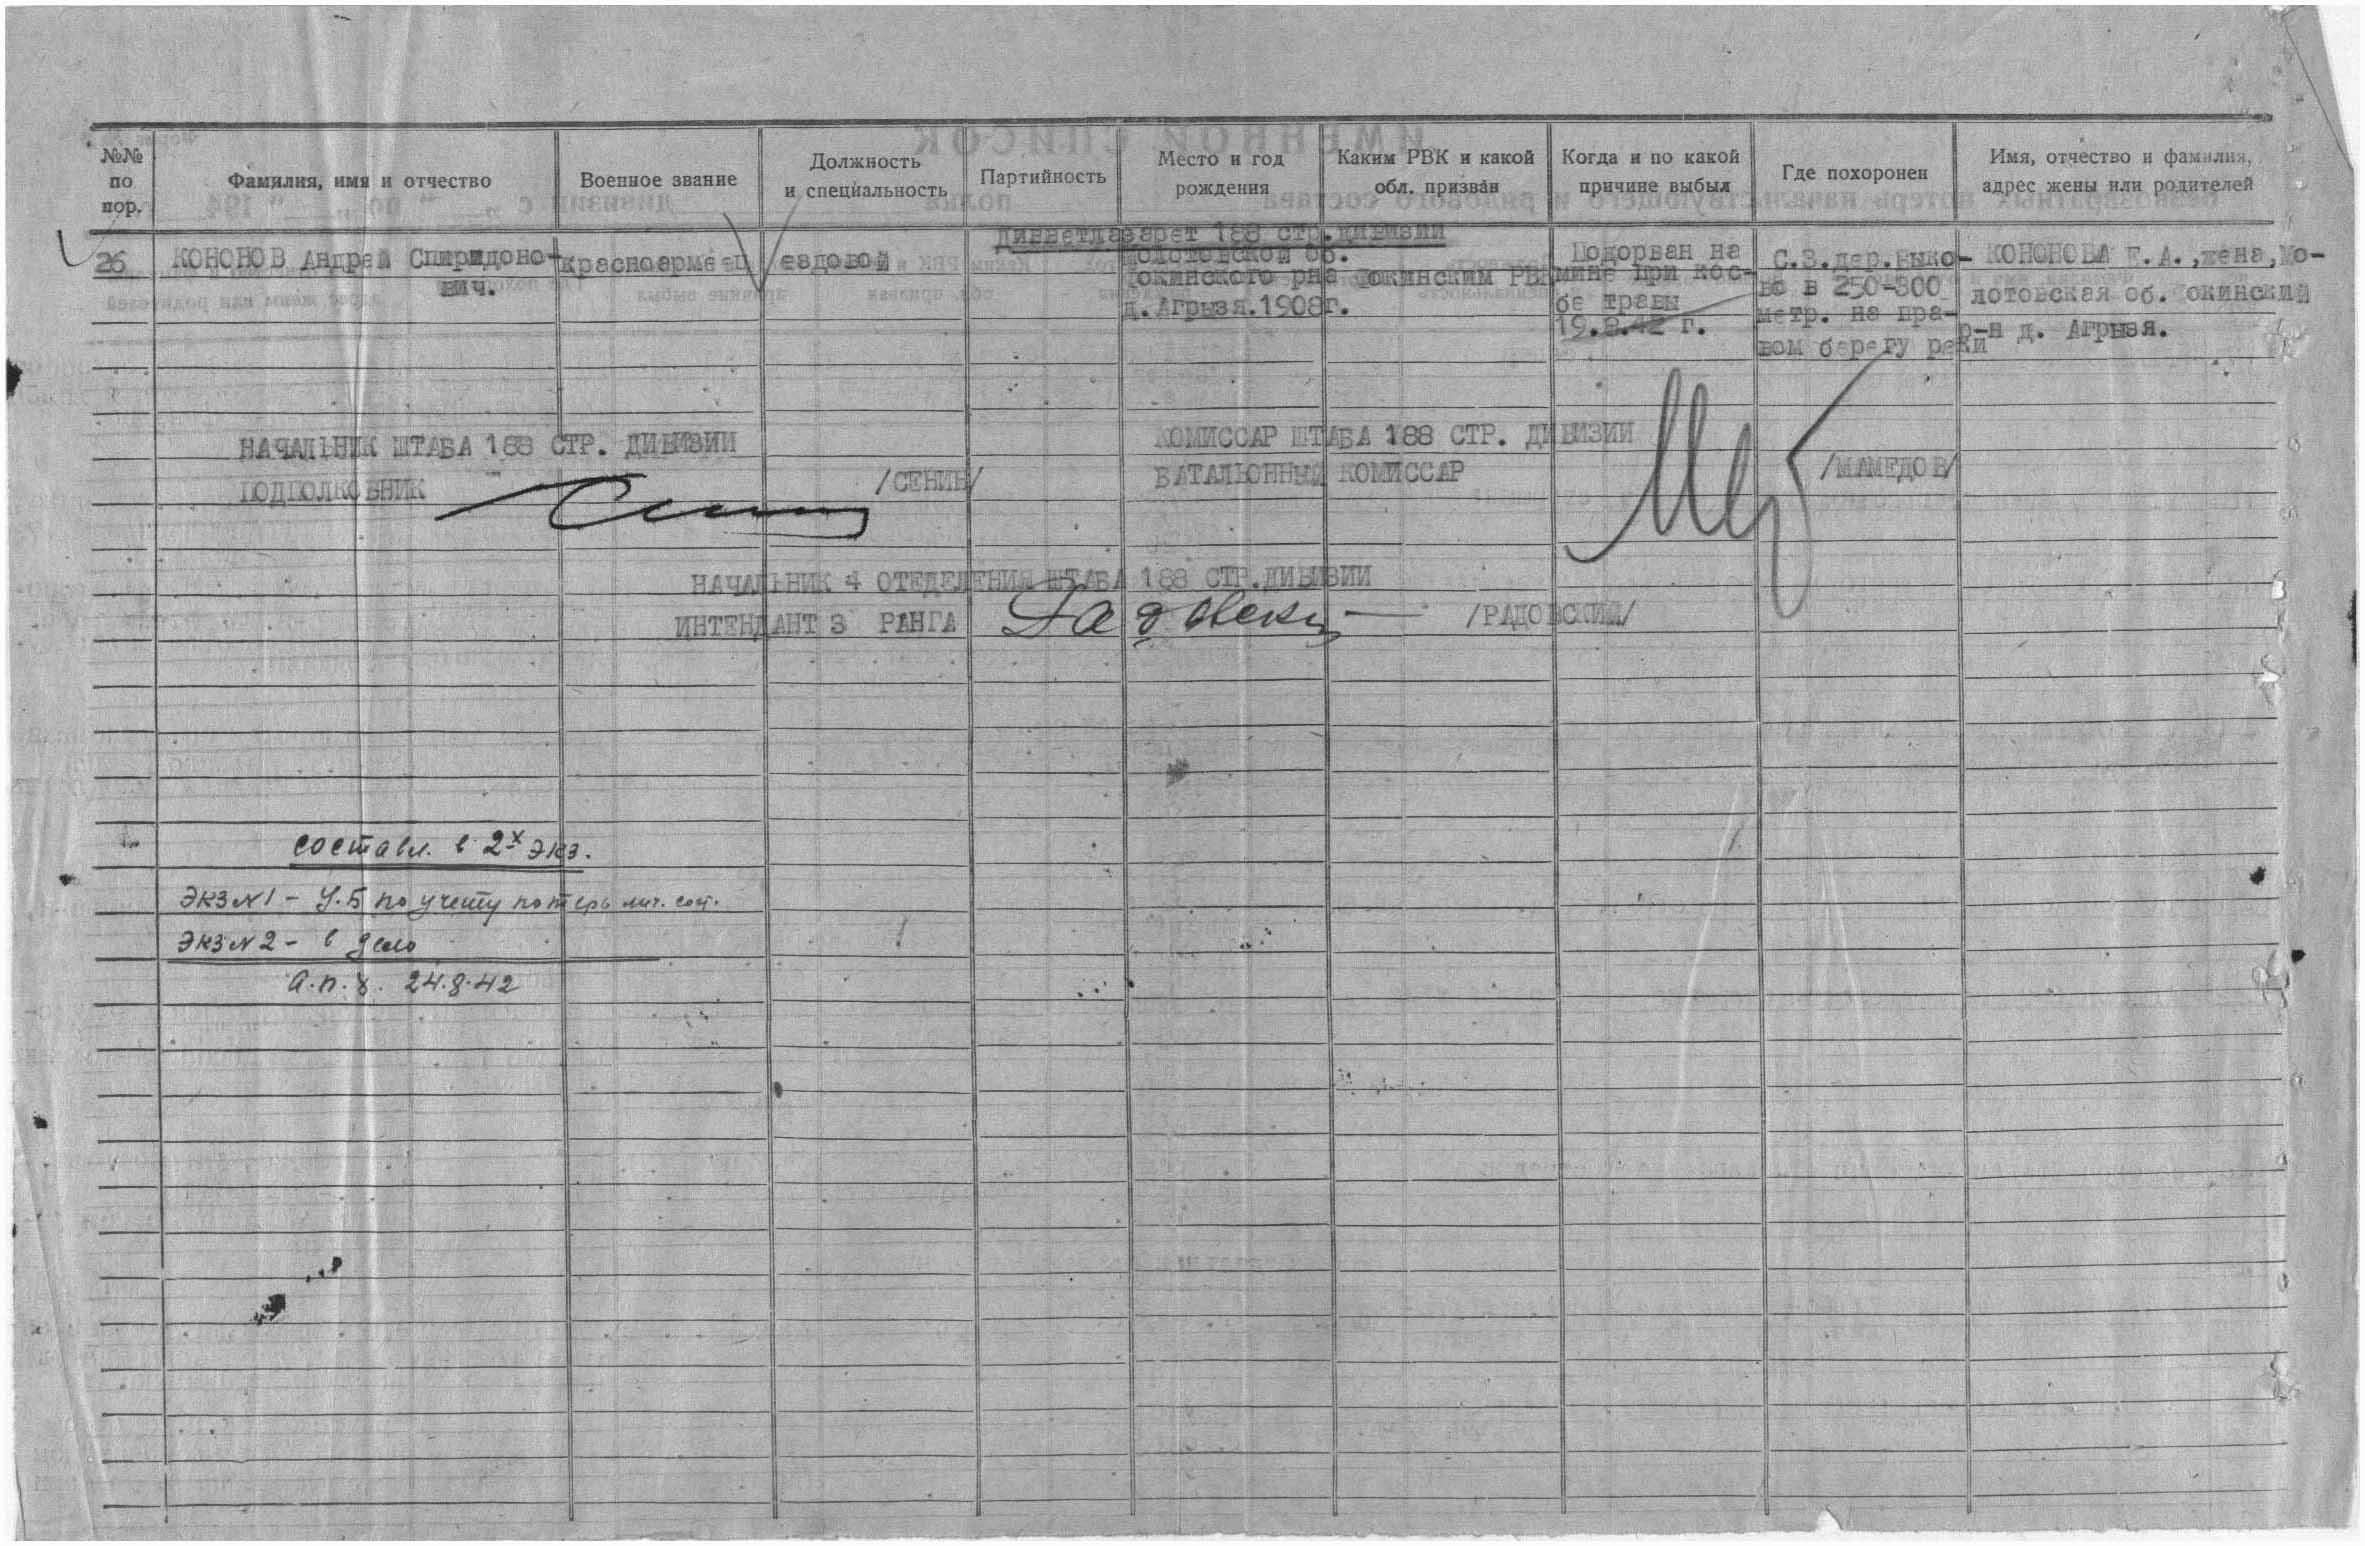 №№ по пор.
Фамилия, имя и отчество
Военное звание
Должность и специальность
Партийность
Место и год рождения
Каким РВК и какой обл. призван
Когда и по какой причине выбыл
Где похоронен
Имя, отчество и фамилия, адрес жены или родителей
Дивветлазарет 188 стр.дивизии
26
КОНОНОВ Андрей Спиридоно-
вич.
красноармеец
ездовой
Молотовской об.
Фокинского рна
д.Агрызя.1908г.
Фокинским РВК
Подорван на
мине при кос-
бе травы
19.8.42 г.
С.З.дер.Выко-
во в 250-300
метр. на пра-
вом берегу реки
КОНОНОВА Е.А.,жена,Мо-
лотовская об. окинский
р-н д. Агрызя.
НАЧАЛЬНИК ШТАБА 188 СТР. ДИВИЗИИ
ПОДПОЛКОВНИК
/СЕНИН/
КОМИССАР ШТАБА 188 СТР. ДИВИЗИИ
БАТАЛЬОННЫЙ КОМИССАР
/МАМЕДОВ/
НАЧАЛЬНИК 4 ОТЕДЕЛЕНИЯ ШТАБА 188 СТР.ДИВИЗИИ
ИНТЕНДАНТ 3 РАНГА
Радовский
/РАДОВСКИЙ/
составл. в 2х экз.
Экз N1 - У.Б по учету потерь лич. сост.
Экз N 2 - в дело
24.8.42